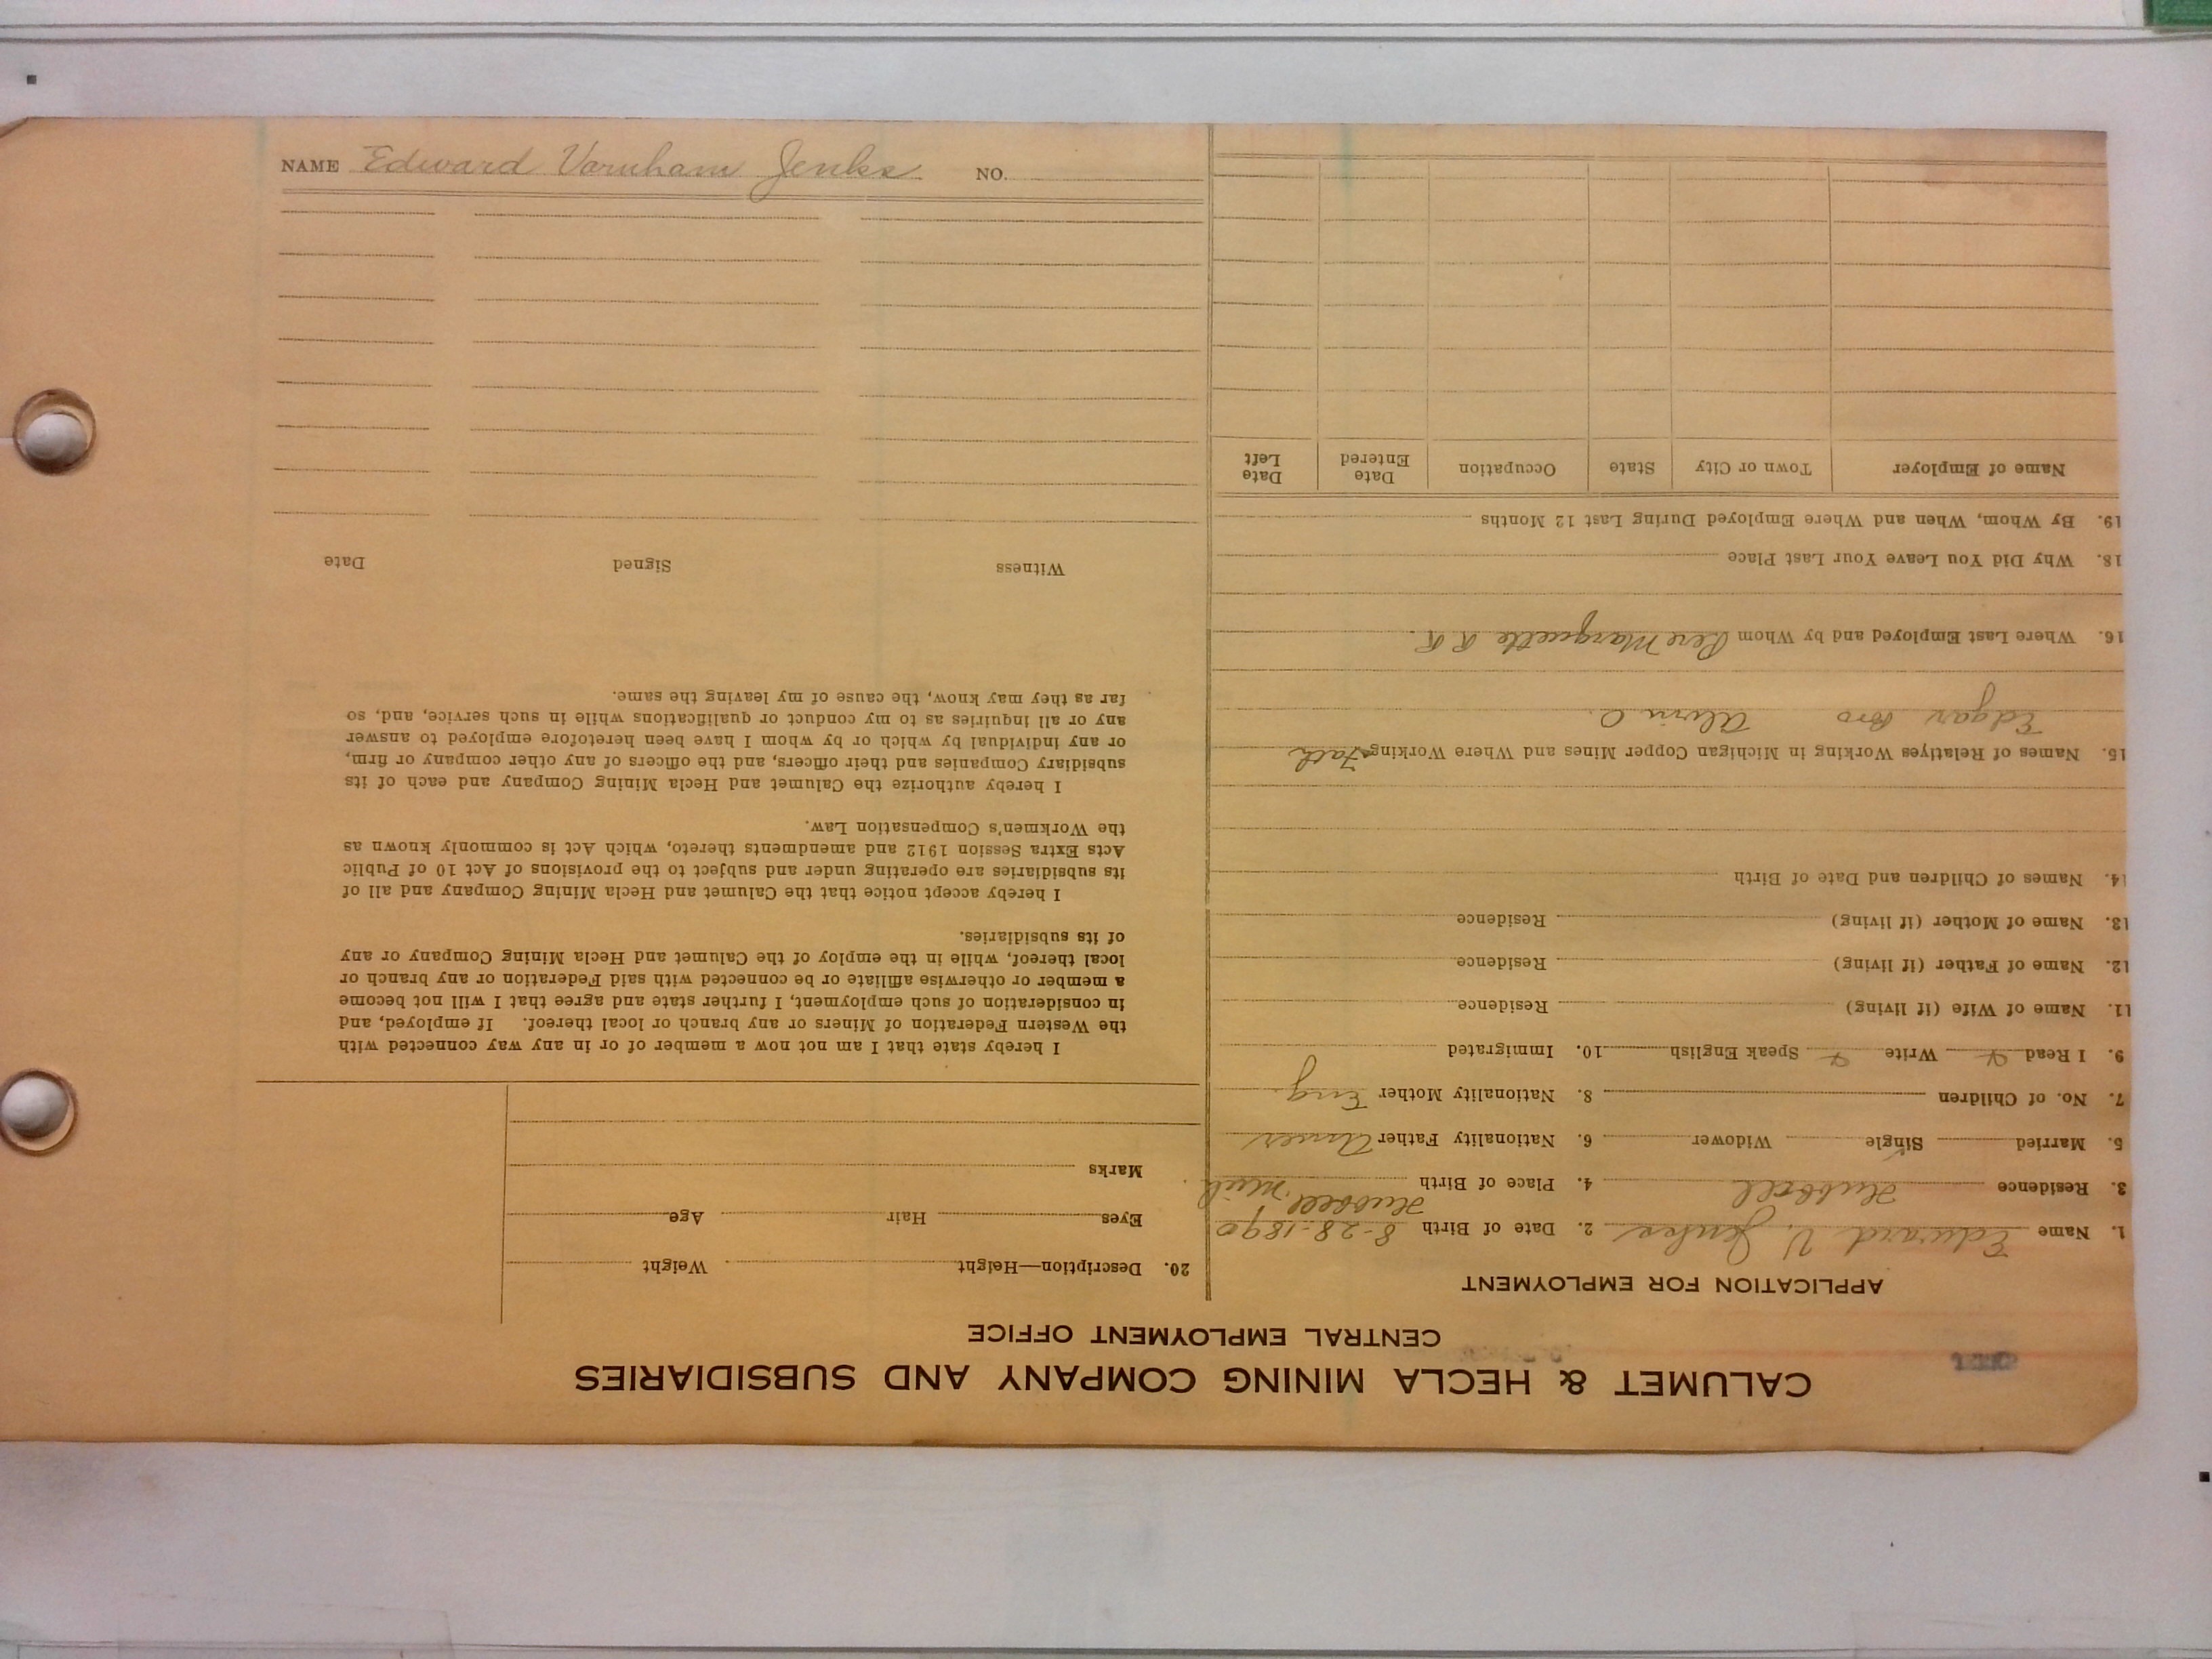 CALUMET & HECLA MINING COMPANY AND SUBSIDIARIES
CENTRAL EMPLOYMENT OFFICE
APPLICATION FOR EMPLOYMENT
1. Name Edward V. Jenks 2. Date of Birth 8-28-1890
3. Residence Hubbell 4. Place of Birth Hubbell, Mich
5. Married Single Widower 6. Nationality Father Amer
7. No. of Children 8. Nationality Mother Eng.
9. I Read Write Speak English 10. Immigrated
11. Name of Wife (if living) Residence
12. Name of Father (if living) Residence
13. Name of Mother (if living) Residence
14. Names of Children and Date of Birth
15. Names of Relatives Working in Michigan Copper Mines and Where Working Fath
Edgar Bro Alvin O.
16. Where Last Employed and by Whom Pere Marquette R R.
18. Why Did You Leave Your Last Place
19. By Whom, When and Where Employed During Last 12 Months
Name of Employer Town or City State Occupation Date Entered Date Left
20. Description—Height Weight
Eyes Hair Age
Marks
I hereby state that I am not now a member of or in any way connected with
the Western Federation of Miners or any branch or local thereof. If employed, and
in consideration of such employment, I further state and agree that I will not become
a member or otherwise affiliate or be connected with said Federation or any branch or
local thereof, while in the employ of the Calumet and Hecla Mining Company or any
of its subsidiaries.
I hereby accept notice that the Calumet and Hecla Mining Company and all of
its subsidiaries are operating under and subject to the provisions of Act 10 of Public
Acts Extra Session 1912 and amendments thereto, which Act is commonly known as
the Workmen's Compensation Law.
I hereby authorize the Calumet and Hecla Mining Company and each of its
subsidiary Companies and their officers, and the officers of any other company or firm,
or any individual by which or by whom I have been heretofore employed to answer
any or all inquiries as to my conduct or qualifications while in such service, and, so
far as they may know, the cause of my leaving the same.
Witness Signed Date
NAME Edward Varnham Jenks NO.